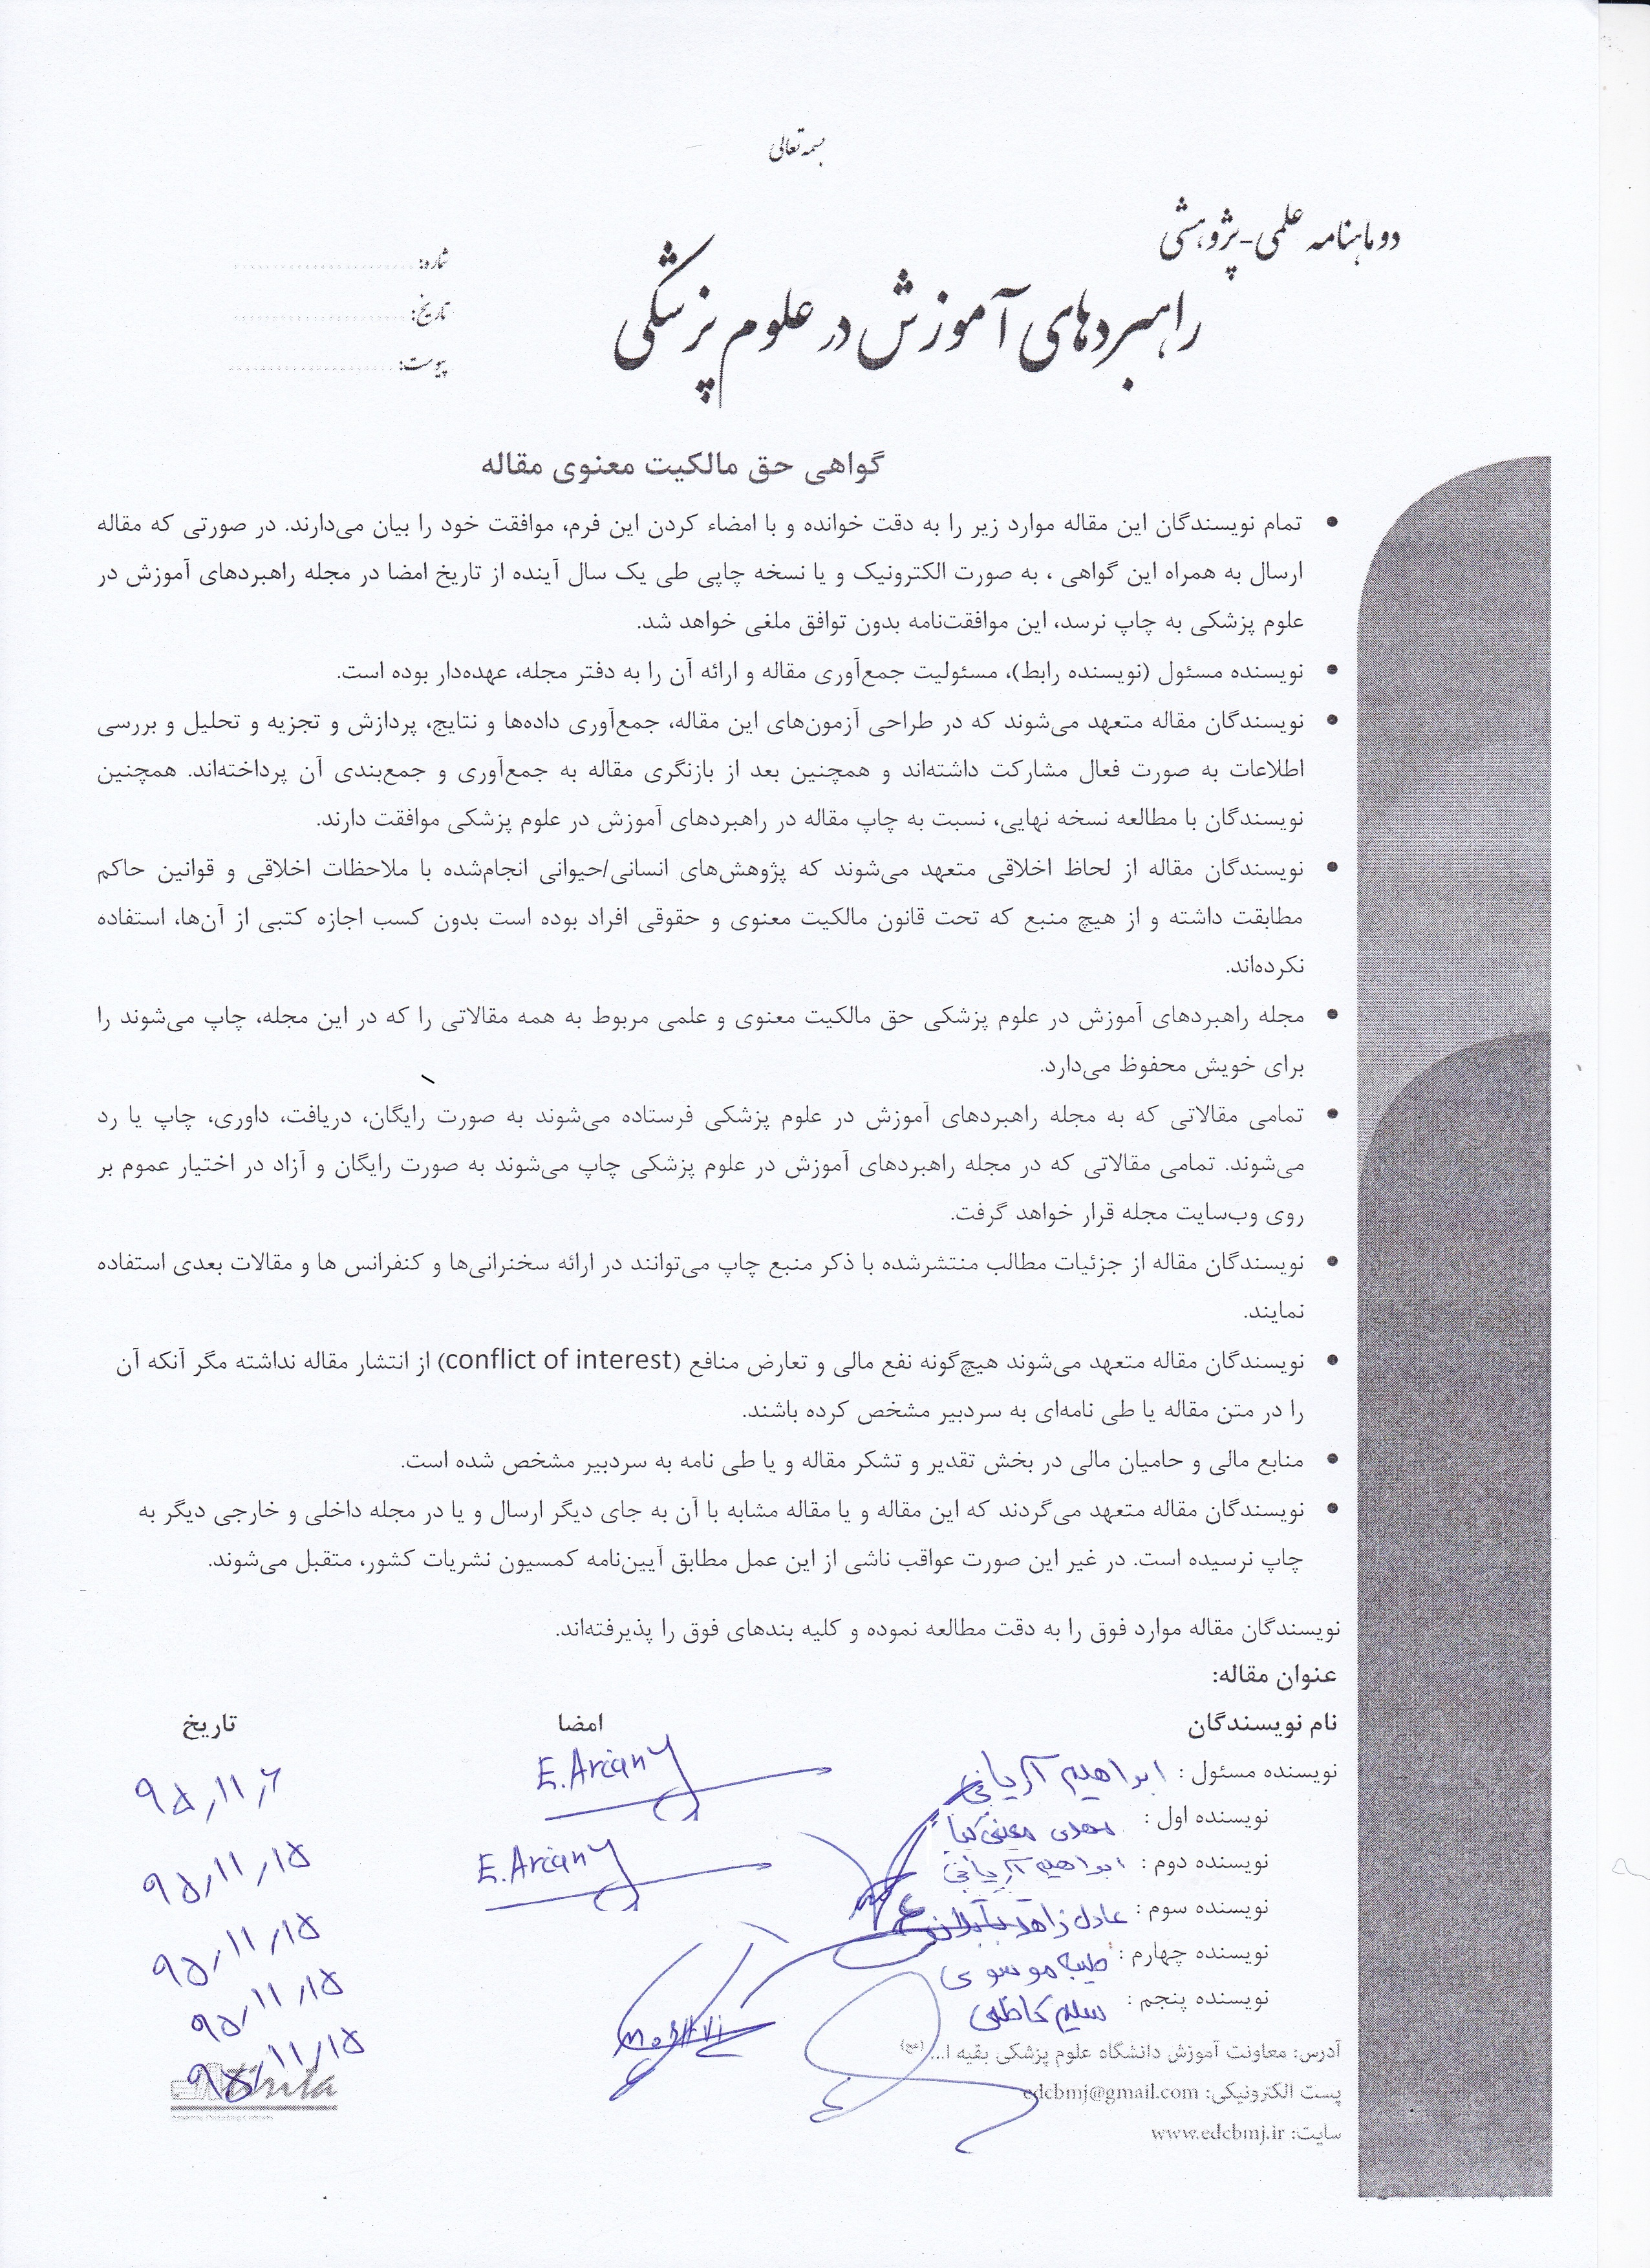 بسمه تعالی
دوماهنامه علمی-پژوهشی
راهبردهای آموزش در علوم پزشکی
شماره:
تاریخ:
پیوست:
گواهی حق مالکیت معنوی مقاله
• تمام نویسندگان این مقاله موارد زیر را به دقت خوانده و با امضاء کردن این فرم، موافقت خود را بیان می‌دارند. در صورتی که مقاله
ارسال به همراه این گواهی ، به صورت الکترونیک و یا نسخه چاپی طی یک سال آینده از تاریخ امضا در مجله راهبردهای آموزش در
علوم پزشکی به چاپ نرسد، این موافقت‌نامه بدون توافق ملغی خواهد شد.
• نویسنده مسئول (نویسنده رابط)، مسئولیت جمع‌آوری مقاله و ارائه آن را به دفتر مجله، عهده‌دار بوده است.
• نویسندگان مقاله متعهد می‌شوند که در طراحی آزمون‌های این مقاله، جمع‌آوری داده‌ها و نتایج، پردازش و تجزیه و تحلیل و بررسی
اطلاعات به صورت فعال مشارکت داشته‌اند و همچنین بعد از بازنگری مقاله به جمع‌آوری و جمع‌بندی آن پرداخته‌اند. همچنین
نویسندگان با مطالعه نسخه نهایی، نسبت به چاپ مقاله در راهبردهای آموزش در علوم پزشکی موافقت دارند.
• نویسندگان مقاله از لحاظ اخلاقی متعهد می‌شوند که پژوهش‌های انسانی/حیوانی انجام‌شده با ملاحظات اخلاقی و قوانین حاکم
مطابقت داشته و از هیچ منبع که تحت قانون مالکیت معنوی و حقوقی افراد بوده است بدون کسب اجازه کتبی از آن‌ها، استفاده
نکرده‌اند.
• مجله راهبردهای آموزش در علوم پزشکی حق مالکیت معنوی و علمی مربوط به همه مقالاتی را که در این مجله، چاپ می‌شوند را
برای خویش محفوظ می‌دارد.
• تمامی مقالاتی که به مجله راهبردهای آموزش در علوم پزشکی فرستاده می‌شوند به صورت رایگان، دریافت، داوری، چاپ یا رد
می‌شوند. تمامی مقالاتی که در مجله راهبردهای آموزش در علوم پزشکی چاپ می‌شوند به صورت رایگان و آزاد در اختیار عموم بر
روی وب‌سایت مجله قرار خواهد گرفت.
• نویسندگان مقاله از جزئیات مطالب منتشرشده با ذکر منبع چاپ می‌توانند در ارائه سخنرانی‌ها و کنفرانس ها و مقالات بعدی استفاده
نمایند.
• نویسندگان مقاله متعهد می‌شوند هیچ‌گونه نفع مالی و تعارض منافع (conflict of interest) از انتشار مقاله نداشته مگر آنکه آن
را در متن مقاله یا طی نامه‌ای به سردبیر مشخص کرده باشند.
• منابع مالی و حامیان مالی در بخش تقدیر و تشکر مقاله و یا طی نامه به سردبیر مشخص شده است.
• نویسندگان مقاله متعهد می‌گردند که این مقاله و یا مقاله مشابه با آن به جای دیگر ارسال و یا در مجله داخلی و خارجی دیگر به
چاپ نرسیده است. در غیر این صورت عواقب ناشی از این عمل مطابق آیین‌نامه کمسیون نشریات کشور، متقبل می‌شوند.
نویسندگان مقاله موارد فوق را به دقت مطالعه نموده و کلیه بندهای فوق را پذیرفته‌اند.
عنوان مقاله:
نام نویسندگان امضا تاریخ
نویسنده مسئول : ابراهیم آریانی E.Ariany ۹۵/۱۱/۶
نویسنده اول : مهدی معینی کیا
نویسنده دوم : ابراهیم آریانی E.Ariany ۹۵/۱۱/۱۵
نویسنده سوم : عادل زاهد ۹۵/۱۱/۱۵
نویسنده چهارم : طیبه موسوی ۹۵/۱۱/۱۵
نویسنده پنجم : سلیم کاظمی ۹۵/۱۱/۱۵
آدرس: معاونت آموزش دانشگاه علوم پزشکی بقیه ا... (عج)
پست الکترونیکی: edcbmj@gmail.com
سایت: www.edcbmj.ir